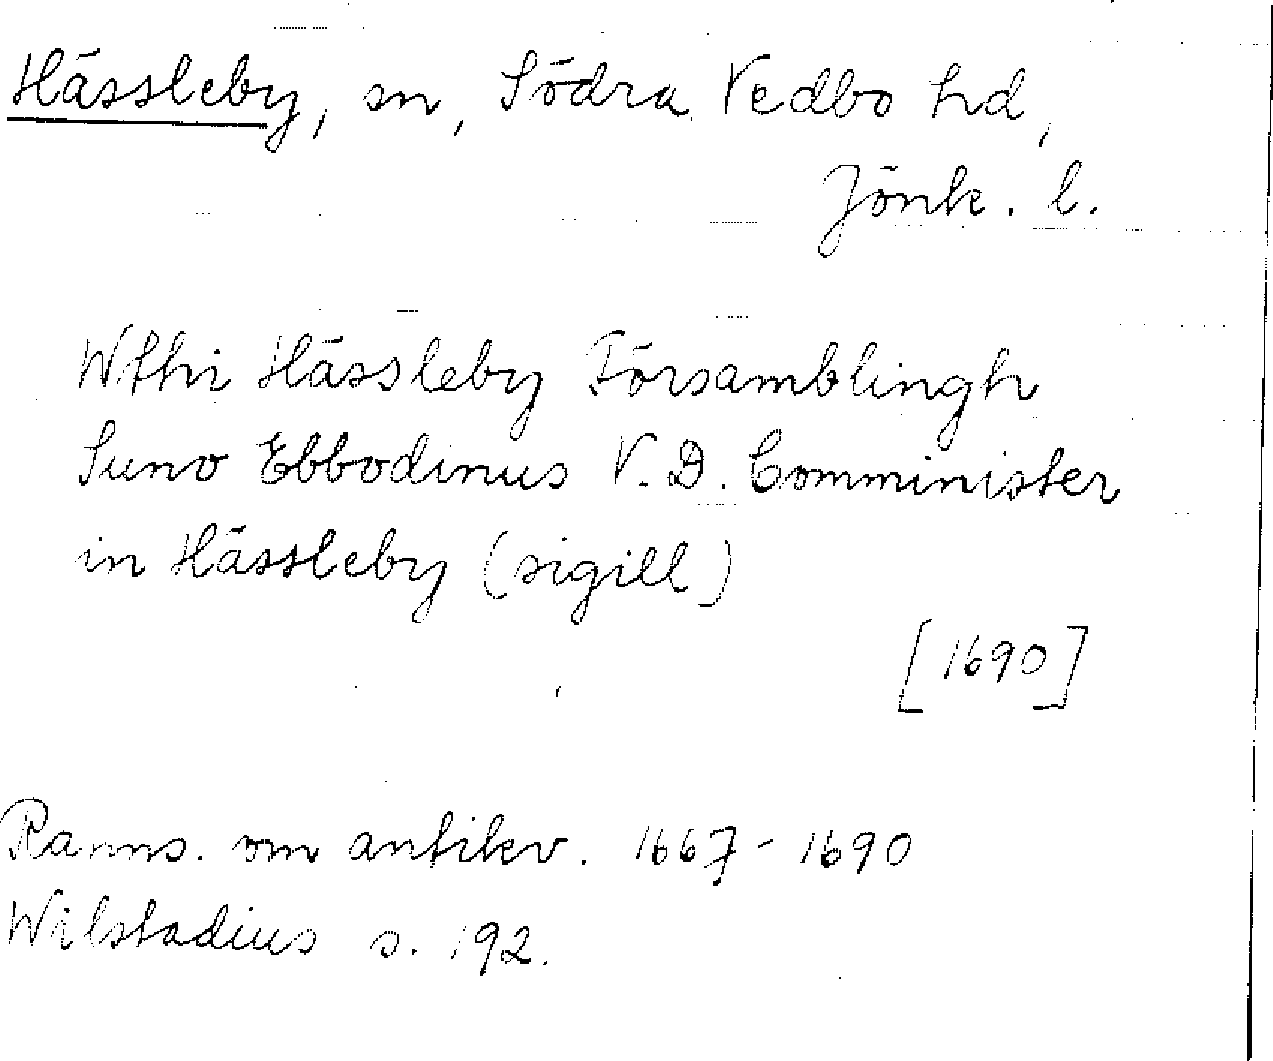 Hässleby, sn, Södra Vedbo hd,
Jönk. l.
Wthi Hässleby Församblingh
Suno Ebbodinus V. D. Comminister
in Hässleby (sigill)
[1690]
Ranns. om antikv. 1667-1690
Wilstadius s. 192.